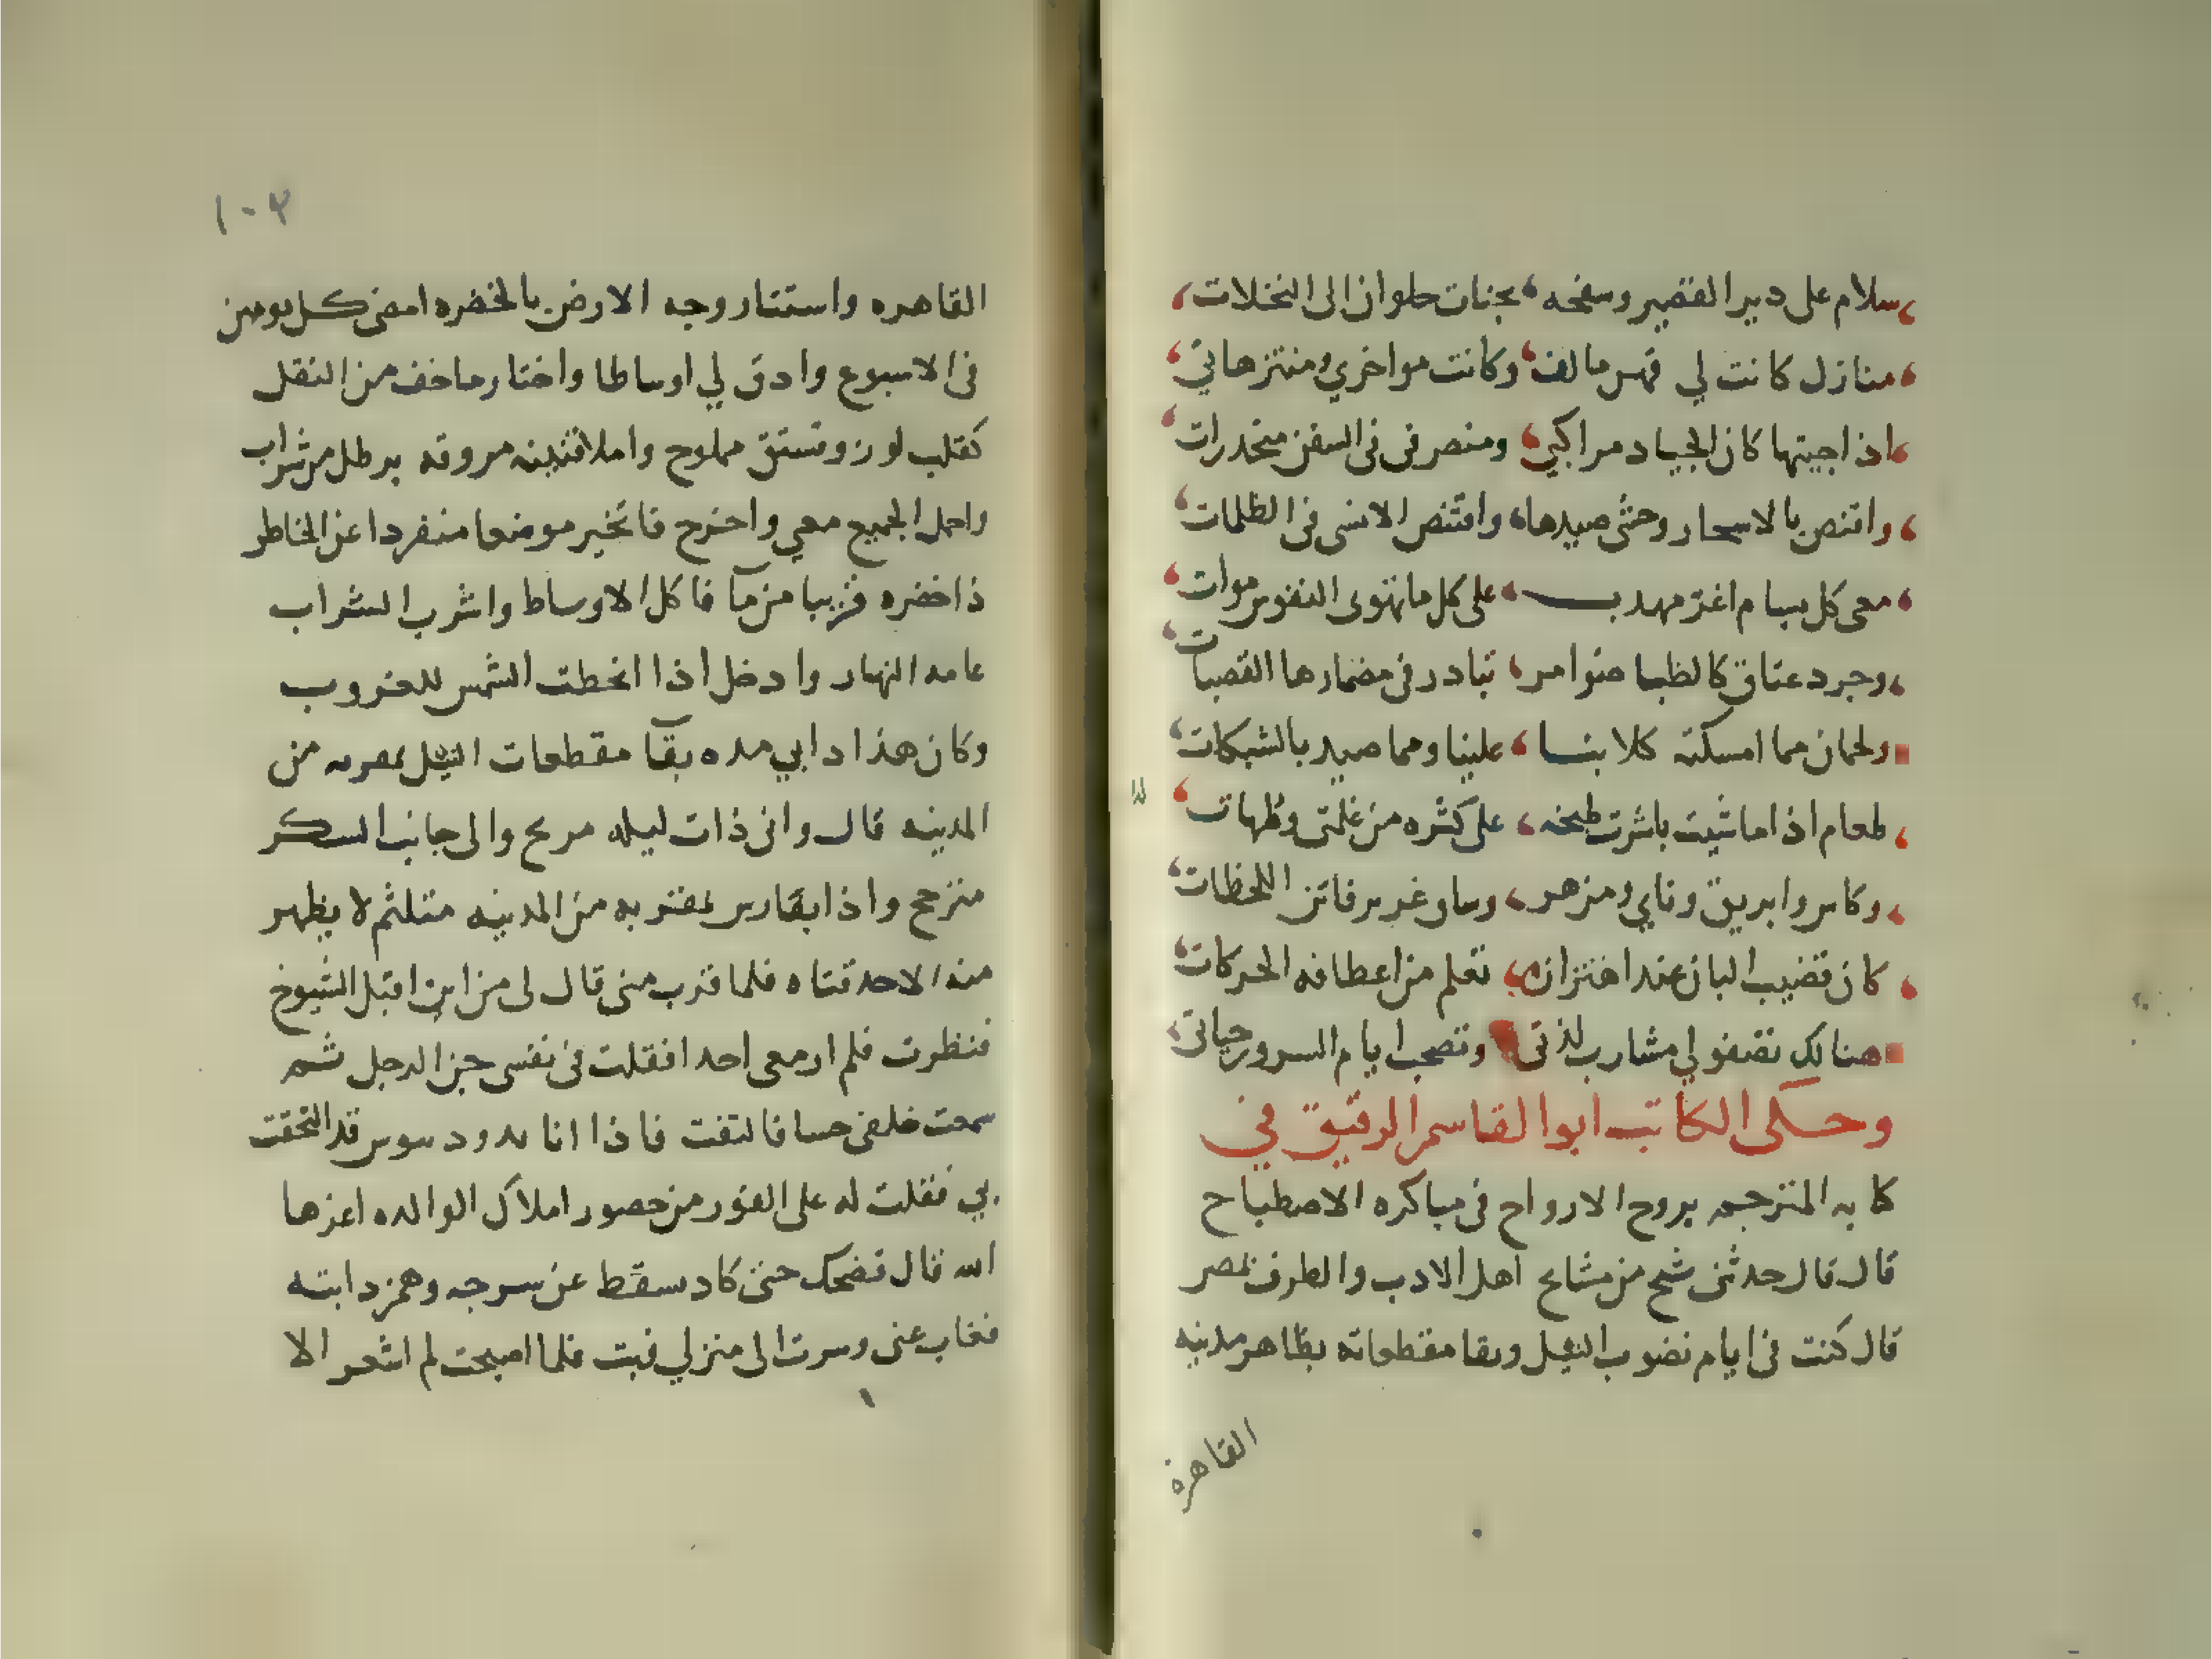 سلام على دير القصير وسفحه بجنات حلوان الى النخلات
منازل كانت لي بهن مالف وكانت مواخري ومنتزهاتي
اذا جيتها كان الجياد مراكبي ومنصرفى فى السفن منحدرات
واقنص بالاسحار وحشى صيدها واقتنص الانسى فى الظلمات
معى كل بسام اغر مهدب على كل ما تهوى النفوس موات
وجرد عتاق كالظبا ضوامر تبادر فى مضمارها القصبات
ولحمان مما امسكته كلابنا علينا ومما صيد بالشبكات
طعام اذا ما شيت باشرت طبخه على كثره من غلمتى وطهات
وكاس وابريق وناي ومزهر وساق غرير فاتن اللحظات
كان قضيب البان عند اهتزازه تعلم من اعطافه الحركات
هنالك تصفو لي مشارب لذتى وتصحب ايام السرور حياتى
وحكى الكاتب ابو القاسم الرقيق في
كتابه المترجم بروح الارواح فى مباكره الاصطباح
قال قال حدثنى شيخ من مشايخ اهل الادب والطرف بمصر
قال كنت فى ايام نضوب النيل وبقا مقطعاته بظاهر مدينه
القاهرة
١٠٢
القاهره واستنار وجه الارض بالخضره امضى كل يومين
فى الاسبوع وادق لي اوساطا واختار ما خف من النقل
كقلب لوز وفستق مملوح واملا قنينه مروقه برطل من شراب
واحمل الجميع معي واخرج فاتخير موضعا منفردا عن الخاطر
ذا خضره قريبا من مآ فاكل الاوساط واشرب الشراب
عامه النهار وادخل اذا انحطت الشمس للغروب
وكان هذا دابي مده بقآ مقطعات النيل بمقربه من
المدينه قال وانى ذات ليله مريح والى جانب السكر
منزحج واذا بفارس بمقربه من المدينه متلثم لا يظهر
منه الا حدقتاه فلما قرب منى قال لى من اين اقبل الشيوخ
فنظرت فلم ار معى احدا فقلت فى نفسى جن الرجل ثم
سمعت خلفى حسا فالتفت فاذا انا بدود سوس قد التحقت
بي فقلت له على الفور من حصور املاك الوالده اعزها
الله قال فضحك حتى كاد سقط عن سرجه وهمز دابته
فغاب عنى وسرت الى منزلي فبت فلما اصبحت لم اشعر الا